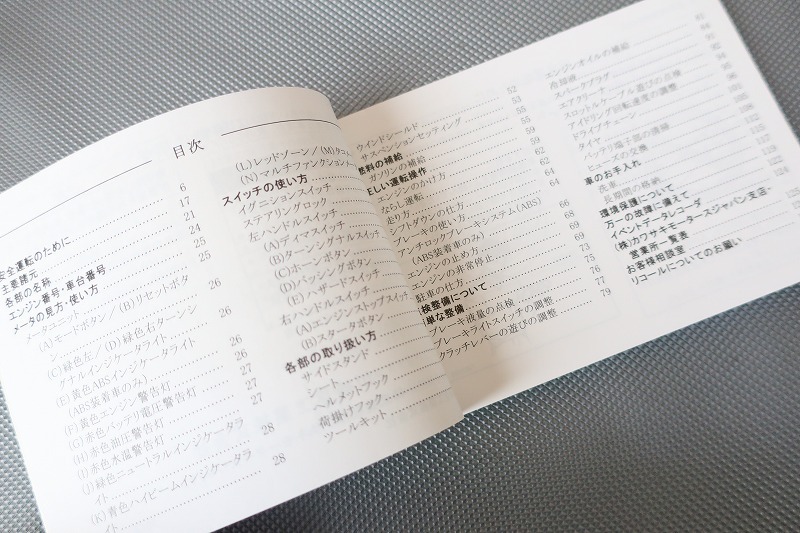 目次
安全運転のために 6
主要諸元 17
各部の名称 21
エンジン番号・車台番号 24
メータの見方・使い方 25
メータユニット 25
(A)モードボタン/(B)リセットボタ
ン 26
(C)緑色左/(D)緑色右ターンシ
グナルインジケータライト 26
(E)黄色ABSインジケータライト
(ABS装着車のみ) 26
(F)黄色エンジン警告灯 27
(G)赤色バッテリ電圧警告灯 27
(H)赤色油圧警告灯 27
(I)赤色水温警告灯
(J)緑色ニュートラルインジケータラ
イト 28
(K)青色ハイビームインジケータラ
イト 28
(L)レッドゾーン/(M)タコ
(N)マルチファンクション
スイッチの使い方
イグニションスイッチ
ステアリングロック
左ハンドルスイッチ
(A)ディマスイッチ
(B)ターンシグナルスイッチ
(C)ホーンボタン
(D)パッシングボタン
(E)ハザードスイッチ
右ハンドルスイッチ
(A)エンジンストップスイッチ
(B)スタータボタン
各部の取り扱い方
サイドスタンド
シート
ヘルメットフック
荷掛けフック
ツールキット
ウインドシールド 52
サスペンションセッティング 53
燃料の補給 55
ガソリンの補給 55
正しい運転操作 59
エンジンのかけ方 59
ならし運転 62
走り方 62
シフトダウンの仕方 64
ブレーキの使い方 64
アンチロックブレーキシステム(ABS)
(ABS装着車のみ) 66
エンジンの止め方 68
エンジンの非常停止 69
駐車の仕方 73
検整備について 75
単な整備 76
ブレーキ液量の点検 77
ブレーキライトスイッチの調整
クラッチレバーの遊びの調整 79
エンジンオイルの補給
冷却液
スパークプラグ
エアクリーナ
スロットルケーブル遊びの点検
アイドリング回転速度の調整
ドライブチェーン
タイヤ
バッテリ端子部の清掃
ヒューズの交換
車のお手入れ
洗車
長期間の格納
環境保護について
万一の故障に備えて
イベントデータレコーダ
(株)カワサキモータースジャパン支店・
営業所一覧表
お客様相談室
リコールについてのお願い